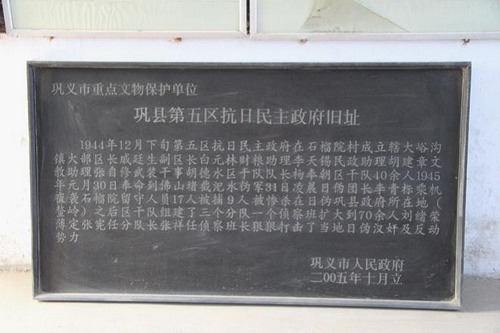 巩义市重点文物保护单位
巩县第五区抗日民主政府旧址
1944年12月下旬第五区抗日民主政府在石榴院村成立辖大峪沟
镇大部区长威廷生副区长白元林财粮助理李天锡民政助理胡建章文
救助理张自修武装干事胡德水区干队队长杨奉朝区干队40余人1945
年元月30日奉命到佛山堵截汜水伪军31日凌晨日伪团长李青标乘机
偷袭石榴院留守人员17人被捕9人被惨杀在日伪巩县政府所在地（
鳌岭）之后区干队组建了三个分队一个侦察班扩大到70余人刘绪荣
薄定张宪任分队长张祥任侦察班长狠狠打击了当地日伪汉奸及反动
势力
巩义市人民政府
二00五年十月立